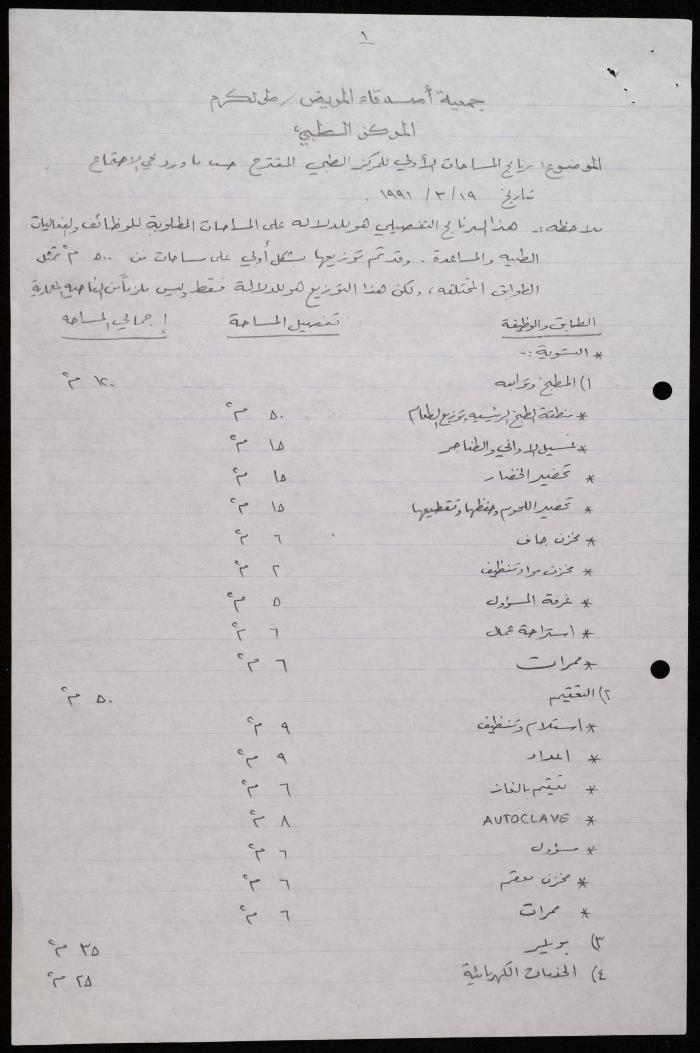 ١
جمعية أصدقاء المريض / طولكرم
المركز الطبي
الموضوع: برنامج المساحات الأولي للمركز الطبي المقترح حسب ما ورد في الاجتماع
بتاريخ ١٩ / ٣ / ١٩٩١
ملاحظة :- هذا البرنامج التفصيلي هو للدلالة على المساحات المطلوبة للوظائف والفعاليات
الطبية والمساعدة . وقد تم توزيعها بشكل أولي على مساحات من ٥٠٠ م٢ تمثل
الطوابق المختلفة ، ولكن هذا التوزيع هو للدلالة فقط وليس ملزماً من الناحية المعمارية
الطابق والوظيفة تفصيل المساحة إجمالي المساحة
* التسوية :-
١) المطبخ وتوابعه ١٢٠ م٢
* منطقة الطبخ الرئيسية وتوزيع الطعام ٥٠ م٢
* غسيل الاواني والطناجر ١٥ م٢
* تحضير الخضار ١٥ م٢
* تحضير اللحوم وحفظها وتقطيعها ١٥ م٢
* مخزن جاف ٦ م٢
* مخزن مواد تنظيف ٢ م٢
* غرفة المسؤول ٥ م٢
* استراحة عمال ٦ م٢
* ممرات ٦ م٢
٢) التعقيم ٥٠ م٢
* استلام وتنظيف ٩ م٢
* اعداد ٩ م٢
* تعقيم بالغاز ٦ م٢
* AUTOCLAVE ٨ م٢
* مسؤول ٦ م٢
* مخزن معقم ٦ م٢
* ممرات ٦ م٢
٣) بويلر ٣٥ م٢
٤) الخدمات الكهربائية ٢٥ م٢